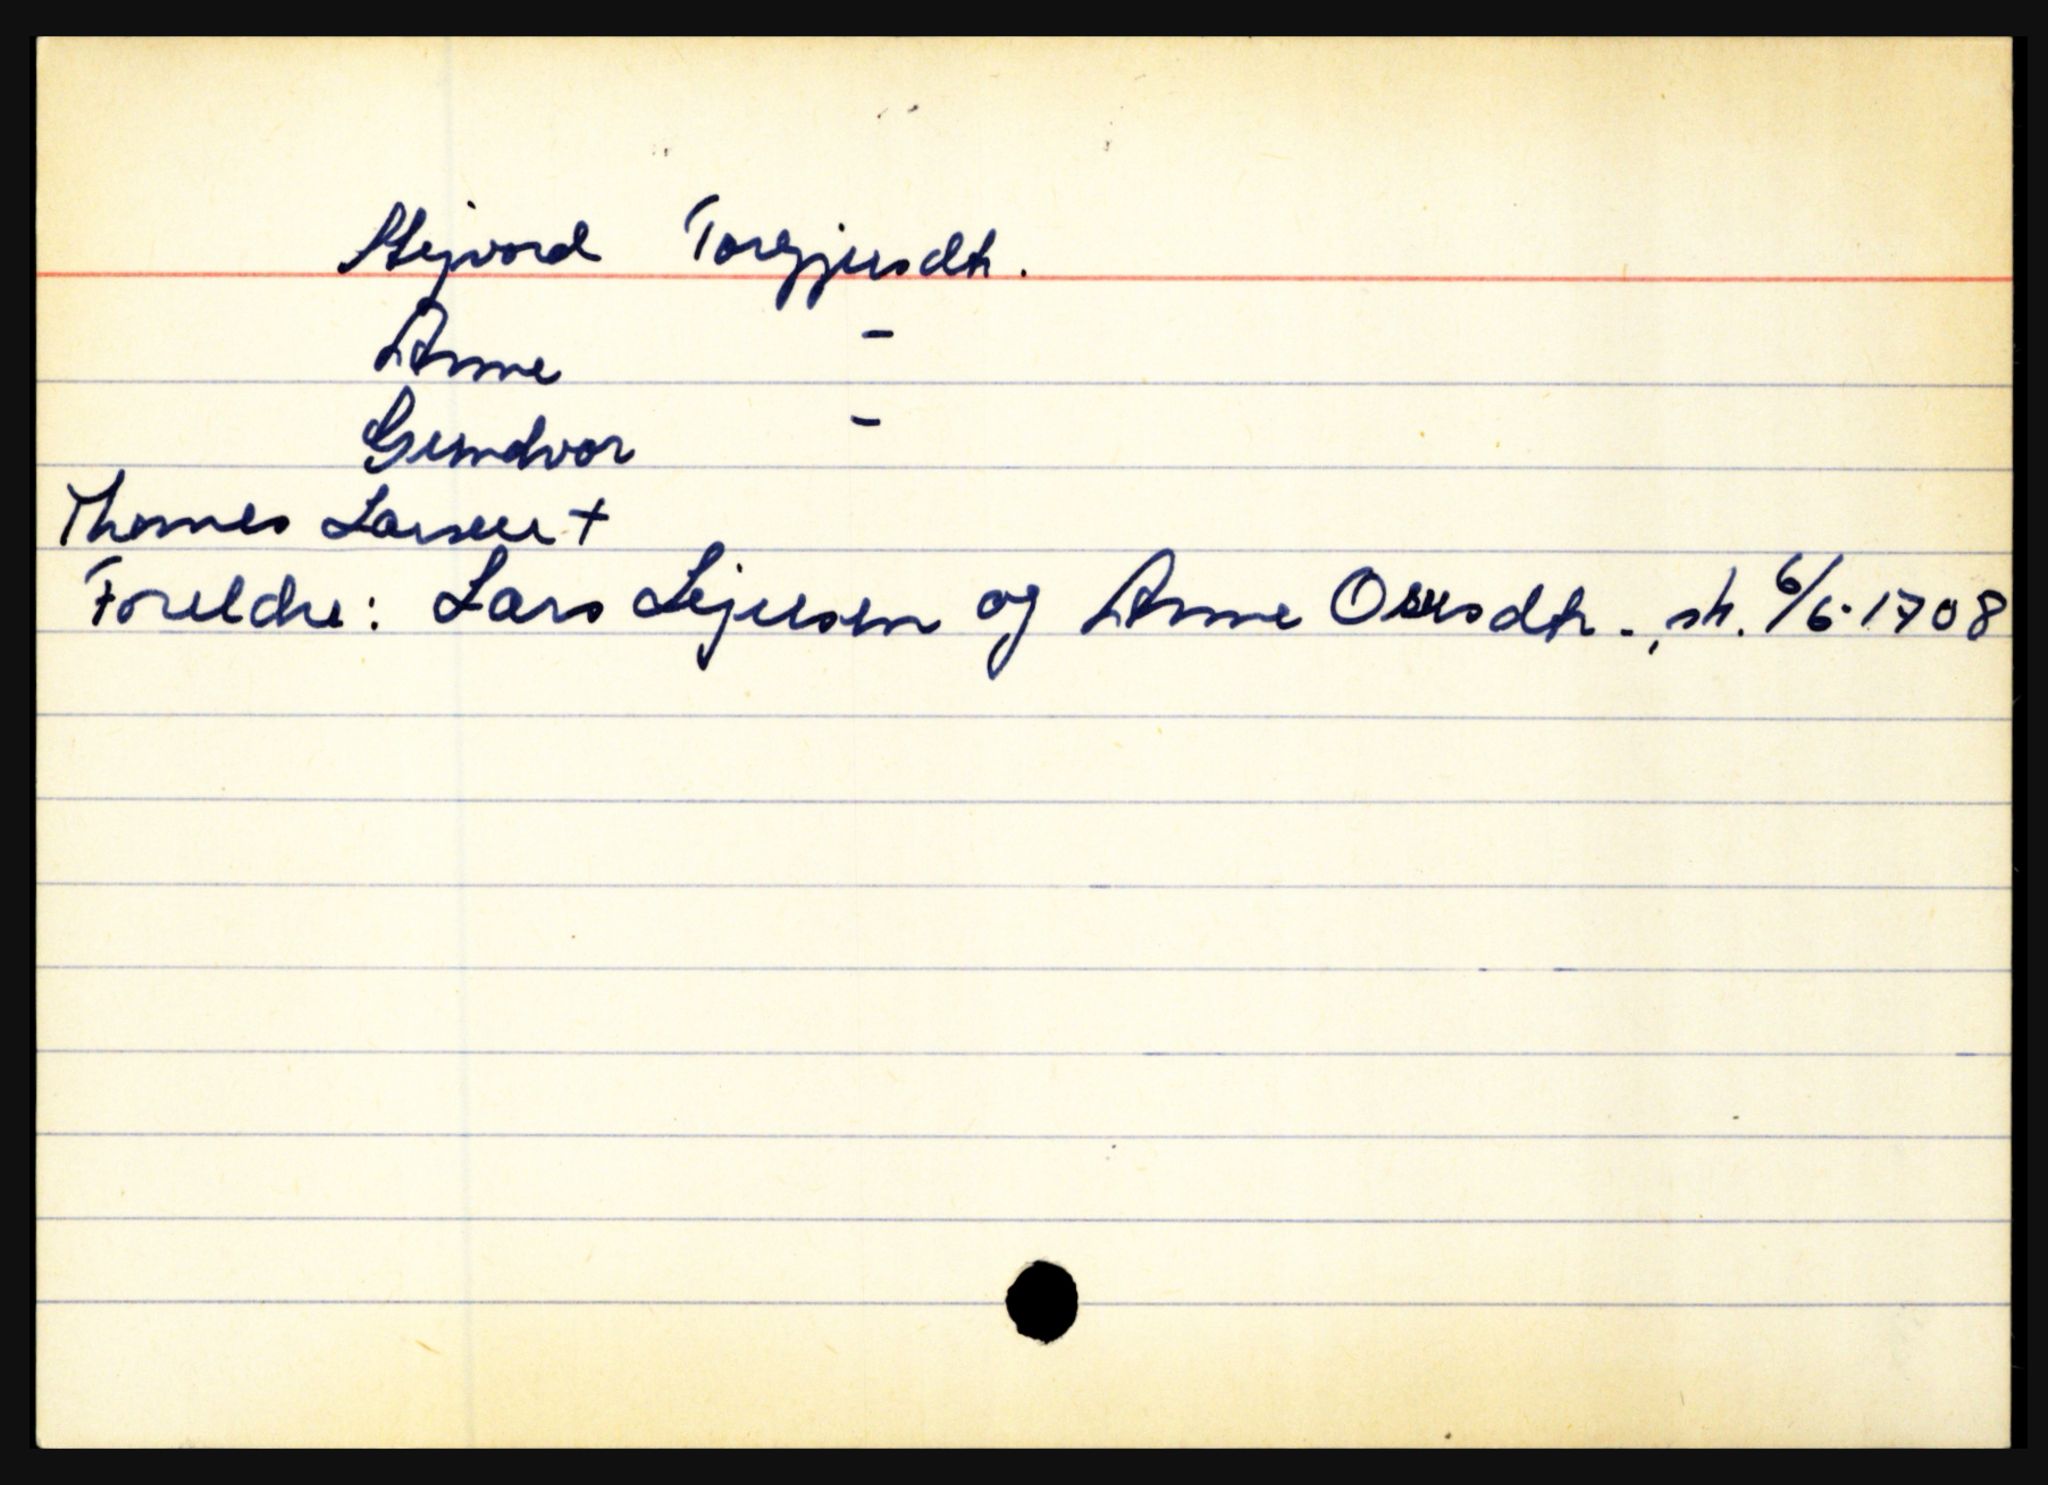 Torgjersdtr.
Anne -
Gundvor -
Thomes Larsen +
Foreldre: Lars Lejersen og Anne Oersdtr., sk. 6/6-1708